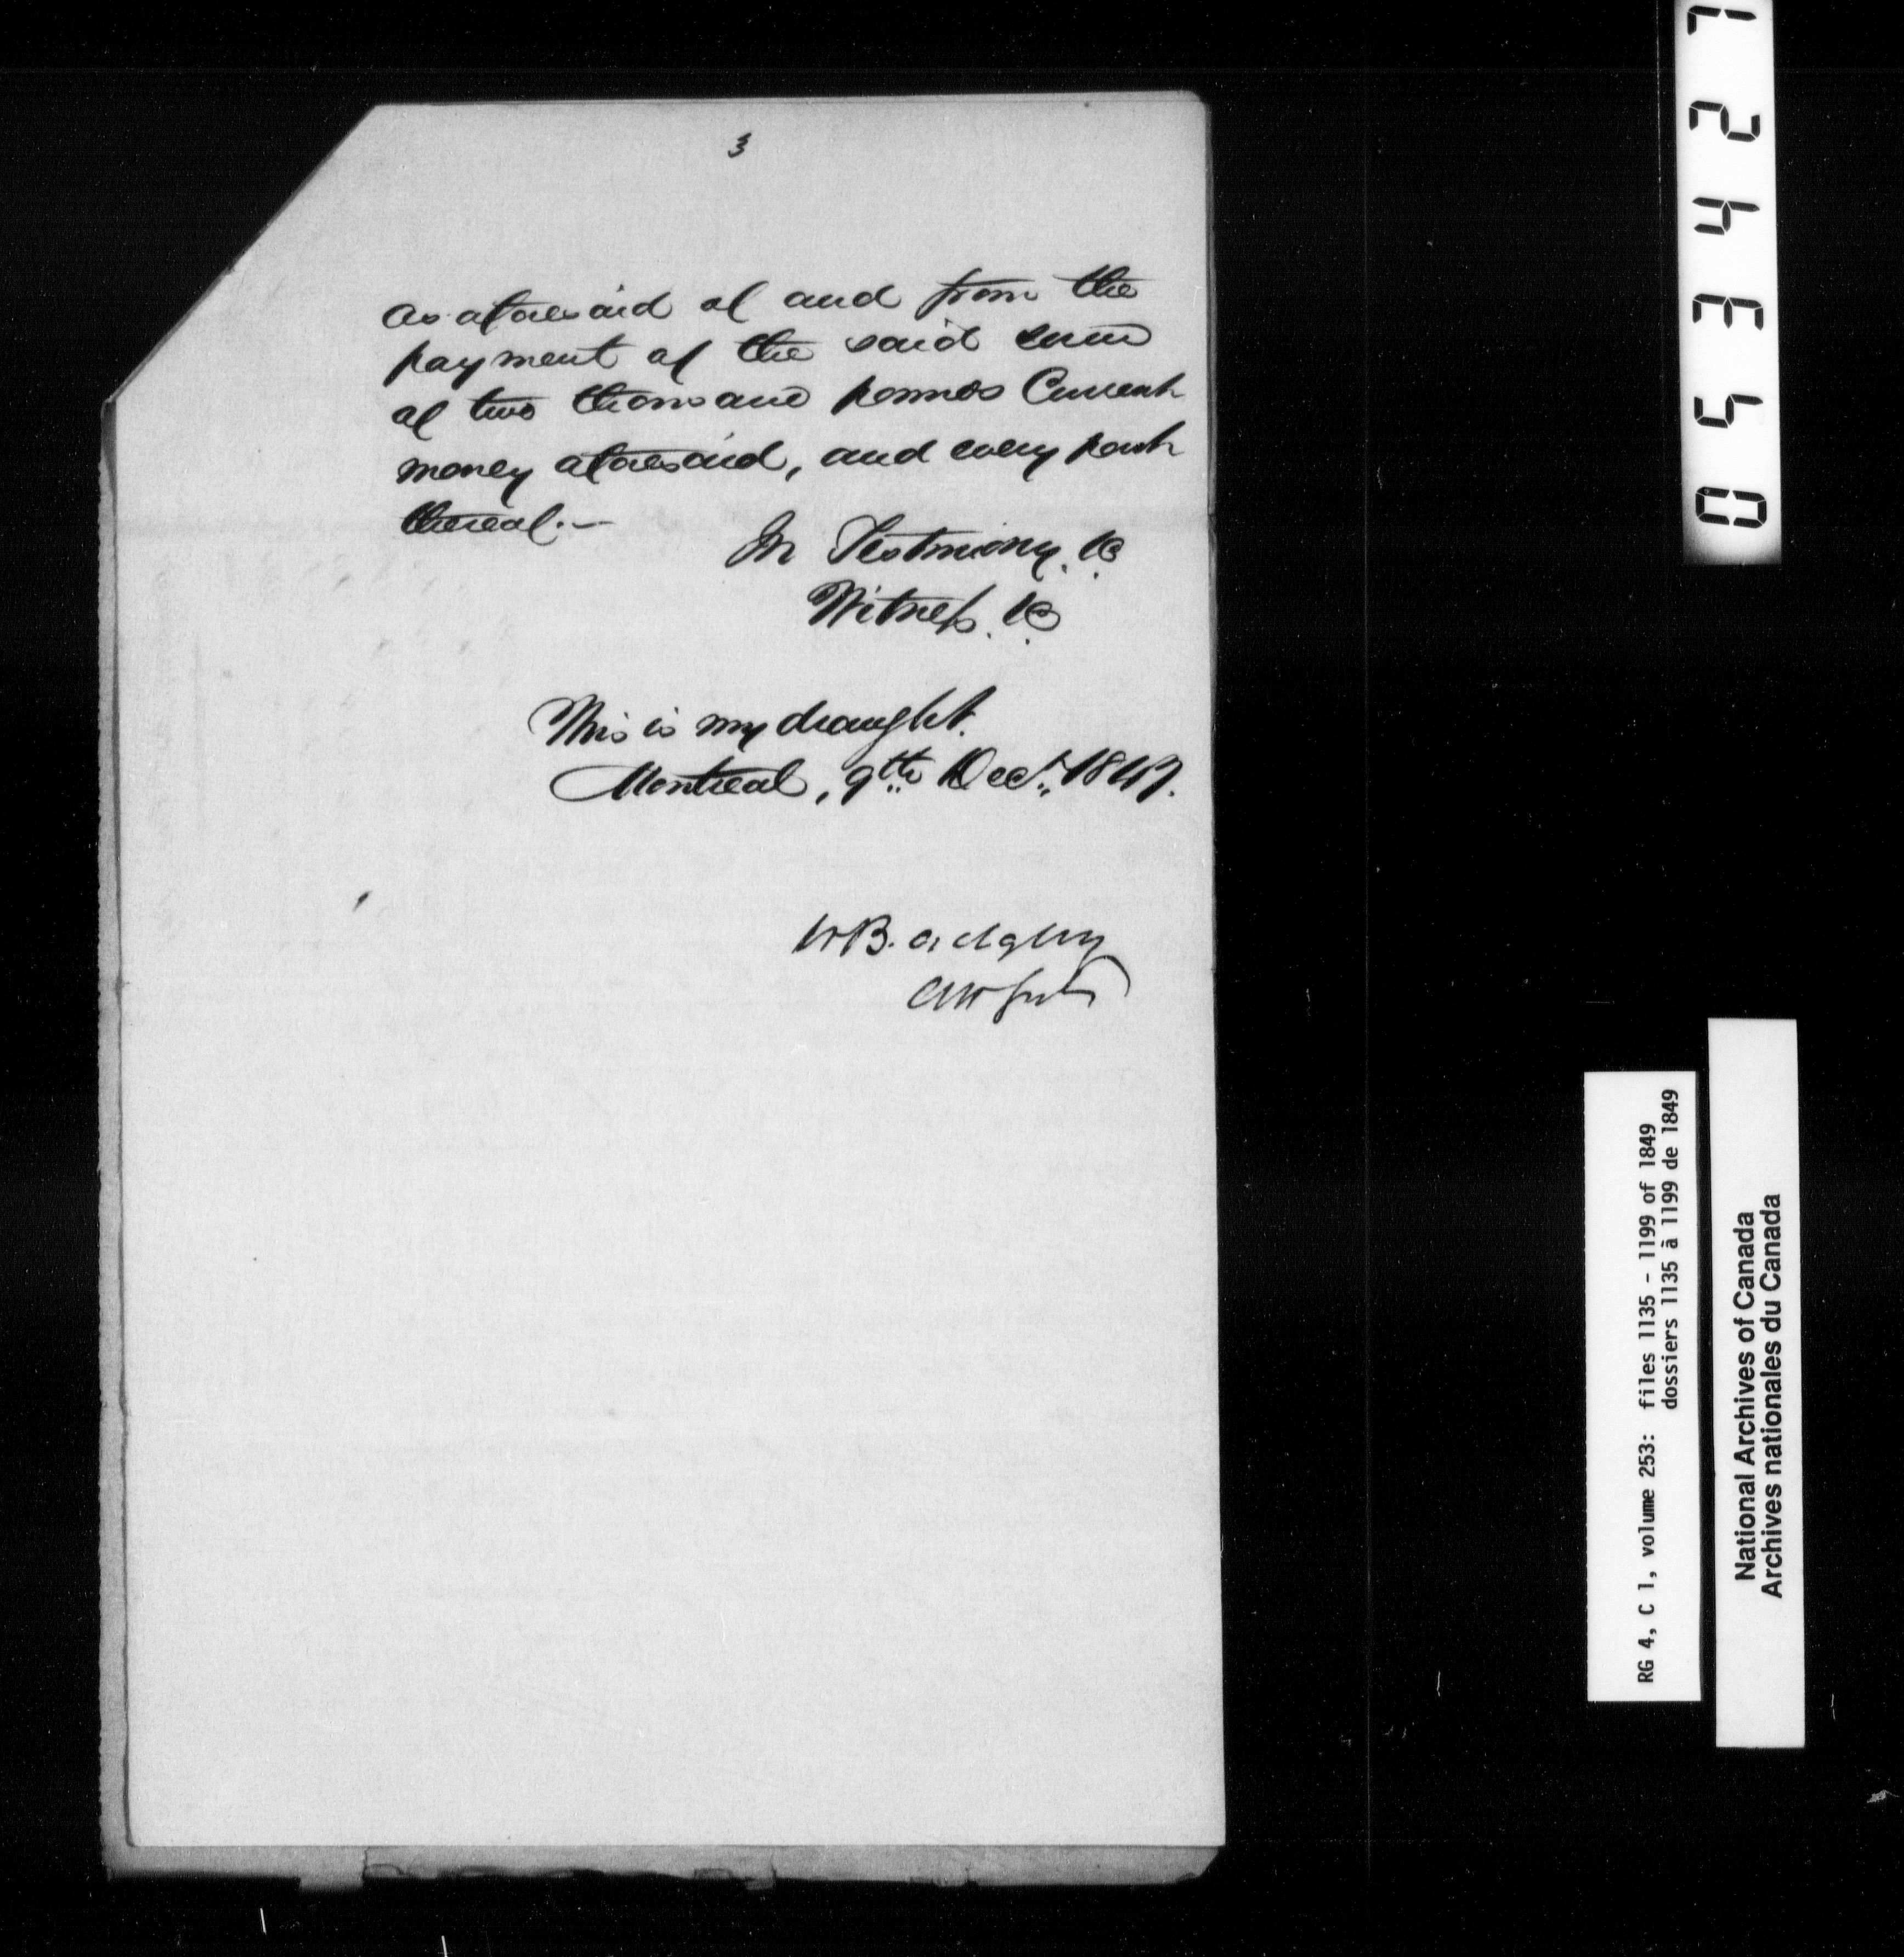 3
as aforesaid of and from the
payment of the said sum
of two thousand pounds Current
money aforesaid, and every part
thereof.—
In Testimony. &c
Witness. &c
This is my draught.
Montreal, 9th Decr. 1847.
W. Badgley
053427
RG 4, C 1, volume 253: files 1135 - 1199 of 1849
dossiers 1135 à 1199 de 1849
National Archives of Canada
Archives nationales du Canada